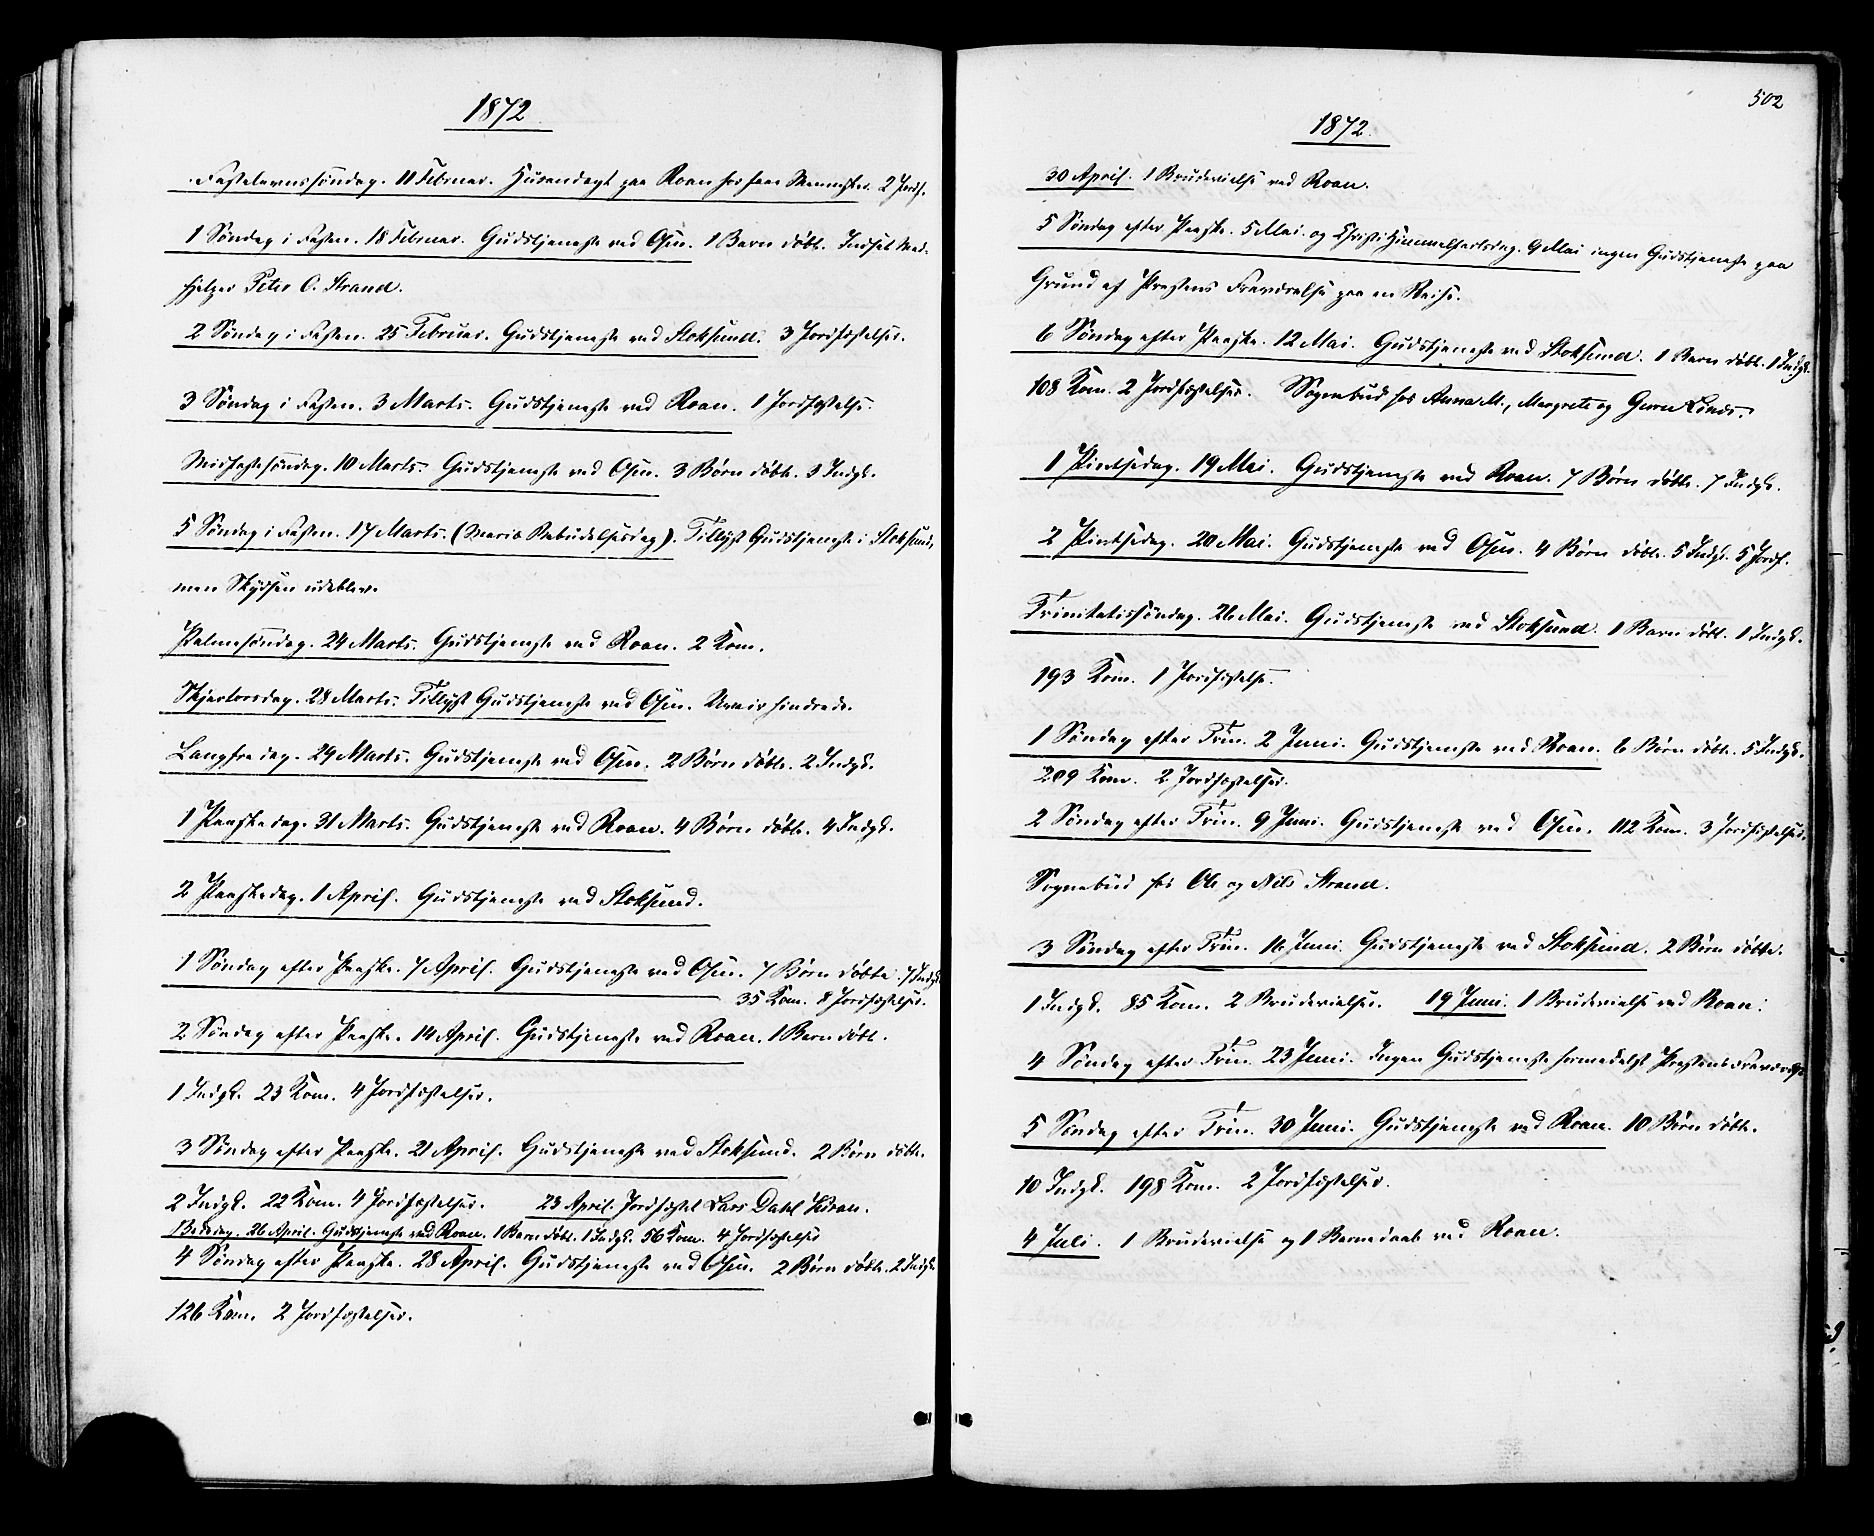 1872
Fastelavnssøndag. 11 Februar. Husandagt paa Roan for faa Mennesker. 2 Jordf.
1 Søndag i Fasten. 18 Februar. Gudstjeneste ved Osen. 1 Barn døbt. Indsat Med-
hjelper Peter O. Strand.
2 Søndag i Fasten. 25 Februar. Gudstjeneste ved Stoksund. 3 Jordfæstelser.
3 Søndag i Fasten. 3 Marts. Gudstjeneste ved Roan. 1 Jordfæstelse.
Midfastesøndag. 10 Marts. Gudstjeneste ved Osen. 3 Børn døbte. 3 Indgk.
5 Søndag i Fasten. 17 Marts. (Mariæ Bebudelsesdag). Tillyst Gudstjeneste i Stoksund,
men Skydsen udeblev.
Palmesøndag. 24 Marts. Gudstjeneste ved Roan. 2 Kom.
Skjærtorsdag. 28 Marts. Tillyst Gudstjeneste ved Osen. Uveir hindrede.
Langfredag. 29 Marts. Gudstjeneste ved Osen. 2 Børn døbte. 2 Indgk.
1 Paaskedag. 31 Marts. Gudstjeneste ved Roan. 4 Børn døbte. 4 Indgk.
2 Paaskedag. 1 April. Gudstjeneste ved Stoksund.
1 Søndag efter Paaske. 7 April. Gudstjeneste ved Osen. 7 Børn døbte. 7 Indgk.
35 Kom. 8 Jordfæstelser.
2 Søndag efter Paaske. 14 April. Gudstjeneste ved Roan. 1 Barn døbt.
1 Indgk. 23 Kom. 4 Jordfæstelser.
3 Søndag efter Paaske. 21 April. Gudstjeneste ved Stoksund. 2 Børn døbte.
2 Indgk. 22 Kom. 4 Jordfæstelser. 23 April. Jordfæstet Lars Dahl Kiran.
1 Bededag. 26 April. Gudstjeneste ved Roan. 1 Barn døbt. 1 Indgk. 56 Kom. 4 Jordfæstelser
4 Søndag efter Paaske. 28 April. Gudstjeneste ved Osen. 2 Børn døbte. 2 Indgk.
126 Kom. 2 Jordfæstelser.
502
1872.
30 April. 1 Brudevielse ved Roan.
5 Søndag efter Paaske. 5 Mai. og Christi Himmelfartsdag. 9 Mai ingen Gudstjeneste paa
Grund af Præstens Fraværelse paa en Reise.
6 Søndag efter Paaske. 12 Mai. Gudstjeneste ved Stoksund. 1 Barn døbt. 1 Indgk.
108 Kom. 2 Jordfæstelser. Sognebud hos Anna M., Margrete og Guru Linds.
1 Pintsedag. 19 Mai. Gudstjeneste ved Roan. 7 Børn døbte. 7 Indgk.
2 Pintsedag. 20 Mai. Gudstjeneste ved Osen. 4 Børn døbte. 5 Indgk. 5 Jordf.
Trinitatissøndag. 26 Mai. Gudstjeneste ved Stoksund. 1 Barn døbt. 1 Indgk.
193 Kom. 1 Jordfæstelse.
1 Søndag efter Trin. 2 Juni. Gudstjeneste ved Roan. 6 Børn døbte. 5 Indgk.
209 Kom. 2 Jordfæstelser.
2 Søndag efter Trin. 9 Juni. Gudstjeneste ved Osen. 112 Kom. 3 Jordfæstelser.
Sognebud hos Ole og Nils Strand.
3 Søndag efter Trin. 16 Juni. Gudstjeneste ved Stoksund. 2 Børn døbte.
1 Indgk. 85 Kom. 2 Brudevielser. 19 Juni. 1 Brudevielse ved Roan.
4 Søndag efter Trin. 23 Juni. Ingen Gudstjeneste formedelst Præstens Fraværelse
5 Søndag efter Trin. 30 Juni. Gudstjeneste ved Roan. 10 Børn døbte.
10 Indgk. 198 Kom. 2 Jordfæstelser.
4 Juli. 1 Brudevielse og 1 Barnedaab ved Roan.